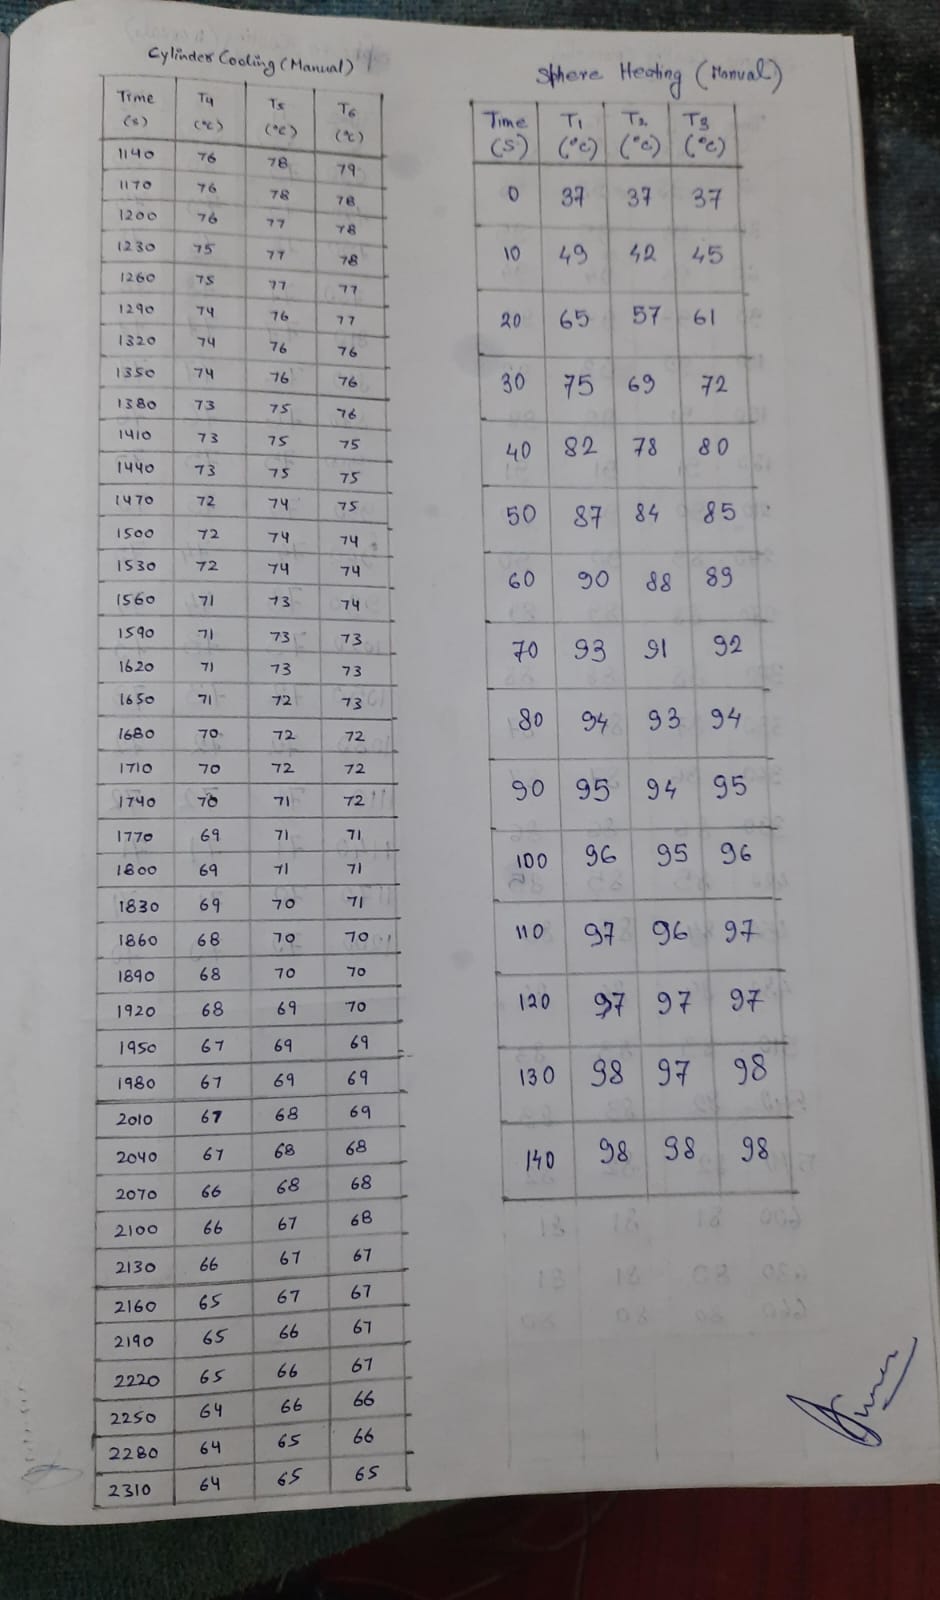 Cylinder Cooling (Manual)
Time (s) T4 (°c) T5 (°c) T6 (°c)
1140 76 78 79
1170 76 78 78
1200 76 77 78
1230 75 77 78
1260 75 77 77
1290 74 76 77
1320 74 76 76
1350 74 76 76
1380 73 75 76
1410 73 75 75
1440 73 75 75
1470 72 74 75
1500 72 74 74
1530 72 74 74
1560 71 73 74
1590 71 73 73
1620 71 73 73
1650 71 72 73
1680 70 72 72
1710 70 72 72
1740 70 71 72
1770 69 71 71
1800 69 71 71
1830 69 70 71
1860 68 70 70
1890 68 70 70
1920 68 69 70
1950 67 69 69
1980 67 69 69
2010 67 68 69
2040 67 68 68
2070 66 68 68
2100 66 67 68
2130 66 67 67
2160 65 67 67
2190 65 66 67
2220 65 66 67
2250 64 66 66
2280 64 65 66
2310 64 65 65
Sphere Heating (Manual)
Time (S) T1 (°c) T2 (°c) T3 (°c)
0 37 37 37
10 49 42 45
20 65 57 61
30 75 69 72
40 82 78 80
50 87 84 85
60 90 88 89
70 93 91 92
80 94 93 94
90 95 94 95
100 96 95 96
110 97 96 97
120 97 97 97
130 98 97 98
140 98 98 98